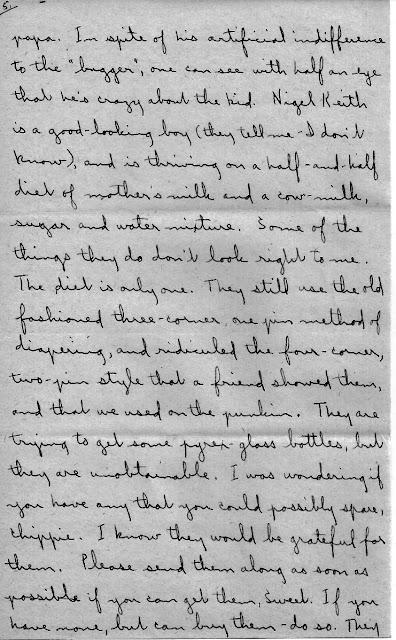 5.
papa. In spite of his artificial indifference
to the "bugger", one can see with half an eye
that he's crazy about the kid. Nigel Keith
is a good-looking boy (they tell me - I don't
know), and is thriving on a half-and-half
diet of mother's milk and a cow-milk,
sugar and water mixture. Some of the
things they do don't look right to me.
The diet is only one. They still use the old
fashioned three-corner, one pin method of
diapering, and ridiculed the four-corner,
two-pin style that a friend showed them,
and that we used on the punkin. They are
trying to get some pyrex glass bottles, but
they are unobtainable. I was wondering if
you have any that you could possibly spare,
chippie. I know they would be grateful for
them. Please send them along as soon as
possible if you can get them, Sweet. If you
have none, but can buy them - do so. They